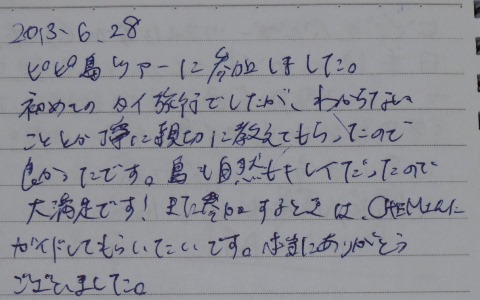 2013.6.28
ピピ島ツアーに参加しました。
初めてのタイ旅行でしたが、わからない
ことも丁寧に親切に教えてもらったので
良かったです。島も自然もキレイだったので
大満足です！また参加するときは、CHEMIAに
ガイドしてもらいたいです。本当にありがとう
ございました。